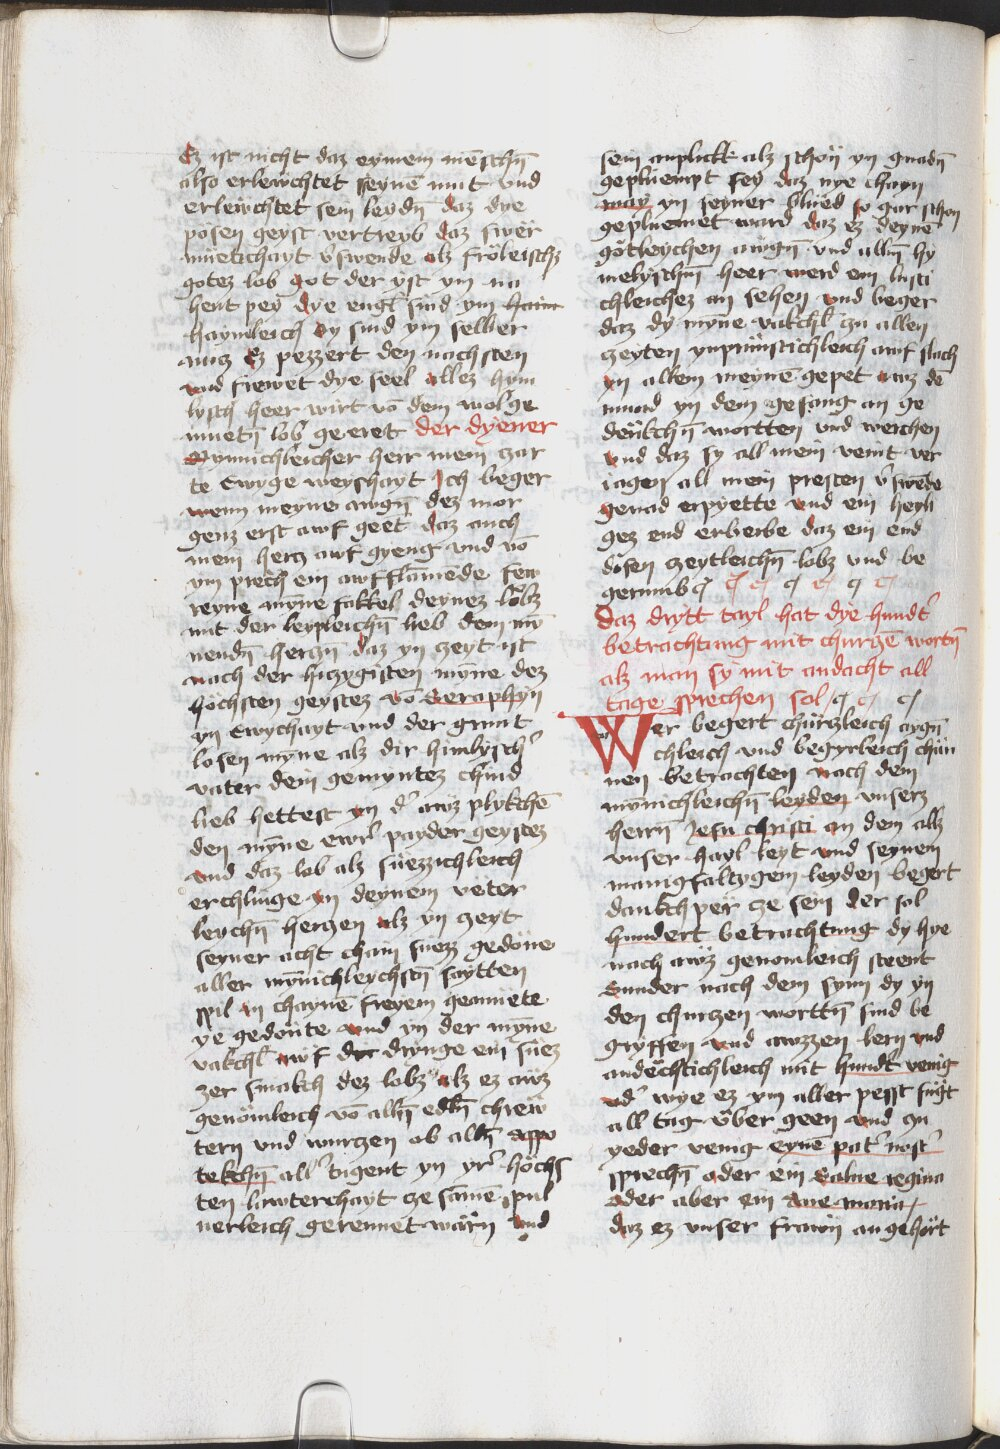 Ez ist nicht daz eynem mēschn̄
also erlewchtet seynē mut vnd
erlewchtet sein leydn̄ daz dye
posen geyst vertreyb daz swer
muetichayt v̓swende alz fröleichz
gotez lob got der yst ym na
hent pey dye engl sind ym
haymleich Sy sind ym selber
nucz Ez pezzert den nachsten
vnd frewet dye seel allez hym
lysch heer wirt vō dem wolge
muetn̄ lob geeret der dyener
Mynnichleicher herr mein zar
te Ewyge weyshayt Ich beger
wenn meyne awgn̄ dez mor
genz erst awf geet daz auch
mein hercz awf gyeng vnd vō
ym prech ein awfflāmēde few
reyne mȳne fakkel deynez lobz
mit der leypleichn̄ lieb dem my̅
nendn̄ herczn̄ daz yn zeyt ist
nach der hiczygisten mȳne dez
höchsten geystez vō Seraphyn
yn Ewychayt vnd der grunt
losen mȳne alz dir himlysch̓
vater dein gemyntez chind
lieb hettest yn d̓ awz plykchē
den mȳne ewr̓ payder geystez
vnd daz lob alz süezzichleich
erchlinge yn deynem veter
leychn̄ herczen alz yn zeyt
seyner acht chain suezz gedöne
aller mȳnichleychstn̄ saytten
spil yn chaynē freyem gemüete
ye gedönte vnd yn der mȳne
vakchl̓ awf dringe ein süez
zer smakch dez lobz alz ez awz
genömleich vō alln̄ edln̄ chrew
tern vnd wurczen ob alln̄ appo
tekchn̄ all̓ tugent yn yr̓ höchs
ten lawterchayt cze sāmē pul
uerleich gerennet wärn vnd
sein anplickt alz schön yn gnadn̄
geplüempt sey daz nye chayn
may yn seyner blüed so gar schon
geplüemet ward daz ez deyne
götleychen awgn̄ vnd alln̄ hy
melyschn̄ heer werd ein lusti
chleichez an sehen vnd beger
daz dy mȳne vakchl̓ zu allen
czeyten ynprünstichleich awf slach
yn allem meynē gepet awz de
mund yn dem gesang an ge
denkchn̄ wortten vnd werchen
vnd daz sy all mein veint ver
iagen all mein presten v̓swēde
genad erpyette vnd ein heyli
gez end erberbe daz ein end
disen zeytleichn̄ lobz vnd be
gerunb
daz dritt tayl hat dye hundt̓
betrachtung mit churczē wortn̄
alz man sy mit andacht all
tage sprechen sol
Wer begert chürczleich aygn̄
chleich vnd begyrleich chün
nen betrachten nach dem
mȳnichleichn̄ leyden vnserz
herrn̄ Jesu christi an dem allz
vnser hayl leyt vnd seynem
manigfaltygem leyden begert
dankchper ze sein der sol
hundert betrachtung dy hye
nach awz genomleich steent
Sunder nach dem synn dy yn
den churczen worttn̄ sind be
gryffen vnd awzzen lern vnd
andëchtichleich mit hundt̓ venig
vd̓ wye ez ym aller pesst fügt
all tag über geen vnd zu
yeder venig eynē pat̓ nost̓
sprechn̄ oder ein Salue regina
oder aber ein Aue maria
daz ez vnser frawn̄ an gehört